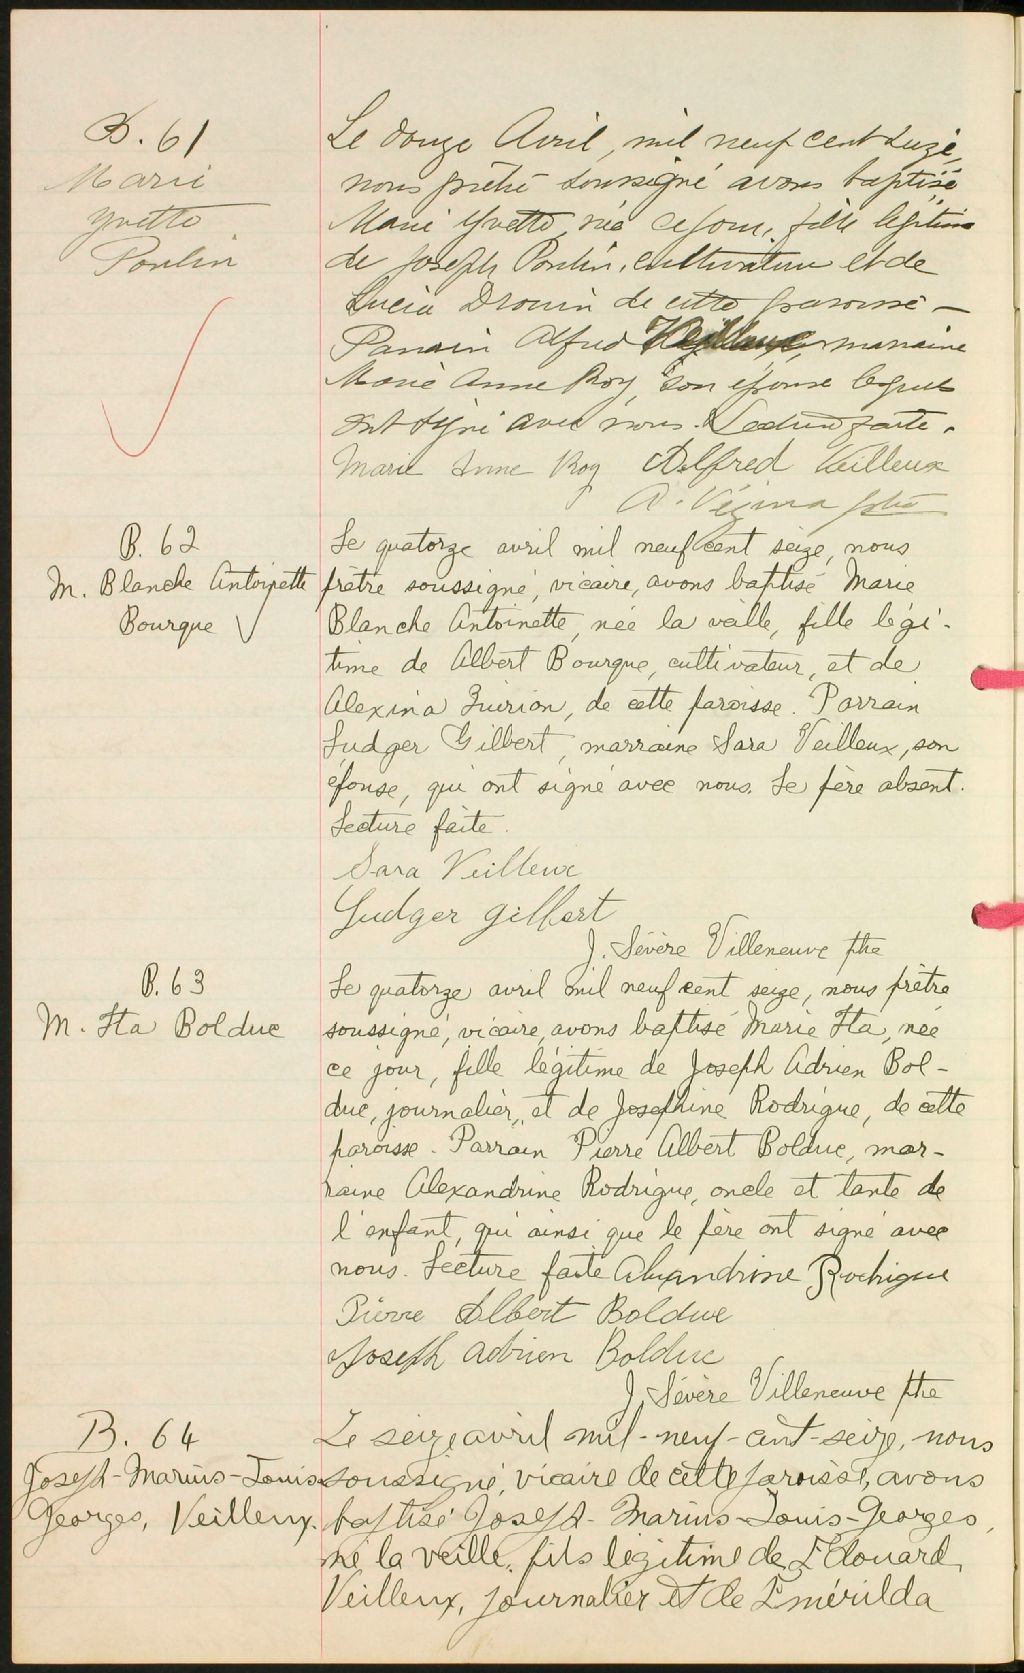 B. 61
Marie
Yvette
Poulin
Le douze Avril, mil neuf cent seize,
nous prêtre soussigné avons baptisé
Marie Yvette, née ce jour, fille légitime
de Joseph Poulin, cultivateur et de
Lucia Drouin de cette paroisse —
Parrain Alfred Veilleux, marraine
Marie Anne Roy, son épouse lesquels
ont signé avec nous. Lecture faite.
Marie Anne Roy Alfred Veilleux
A. Vézina ptre
B. 62
M. Blanche Antoinette
Bourque
Le quatorze avril mil neuf cent seize, nous
prêtre soussigné, vicaire, avons baptisé Marie
Blanche Antoinette, née la veille, fille légi-
time de Albert Bourque, cultivateur, et de
Alexina Quirion, de cette paroisse. Parrain
Ludger Gilbert, marraine Sara Veilleux, son
épouse, qui ont signé avec nous. Le père absent.
Lecture faite.
Sara Veilleux
Ludger Gilbert
J. Sévère Villeneuve ptre
B. 63
M. Ita Bolduc
Le quatorze avril mil neuf cent seize, nous prêtre
soussigné, vicaire, avons baptisé Marie Ita, née
ce jour, fille légitime de Joseph Adrien Bol-
duc, journalier, et de Josephine Rodrigue, de cette
paroisse. Parrain Pierre Albert Bolduc, mar-
raine Alexandrine Rodrigue, oncle et tante de
l'enfant, qui ainsi que le père ont signé avec
nous. Lecture faite Alexandrine Rodrigue
Pierre Albert Bolduc
Joseph Adrien Bolduc
J. Sévère Villeneuve ptre
B. 64
Joseph-Marius-Louis
Georges, Veilleux.
Le seize avril mil-neuf-cent-seize, nous
soussigné, vicaire de cette paroisse, avons
baptisé Joseph-Marius-Louis-Georges,
né la veille, fils légitime de Edouard
Veilleux, journalier et de Emérilda